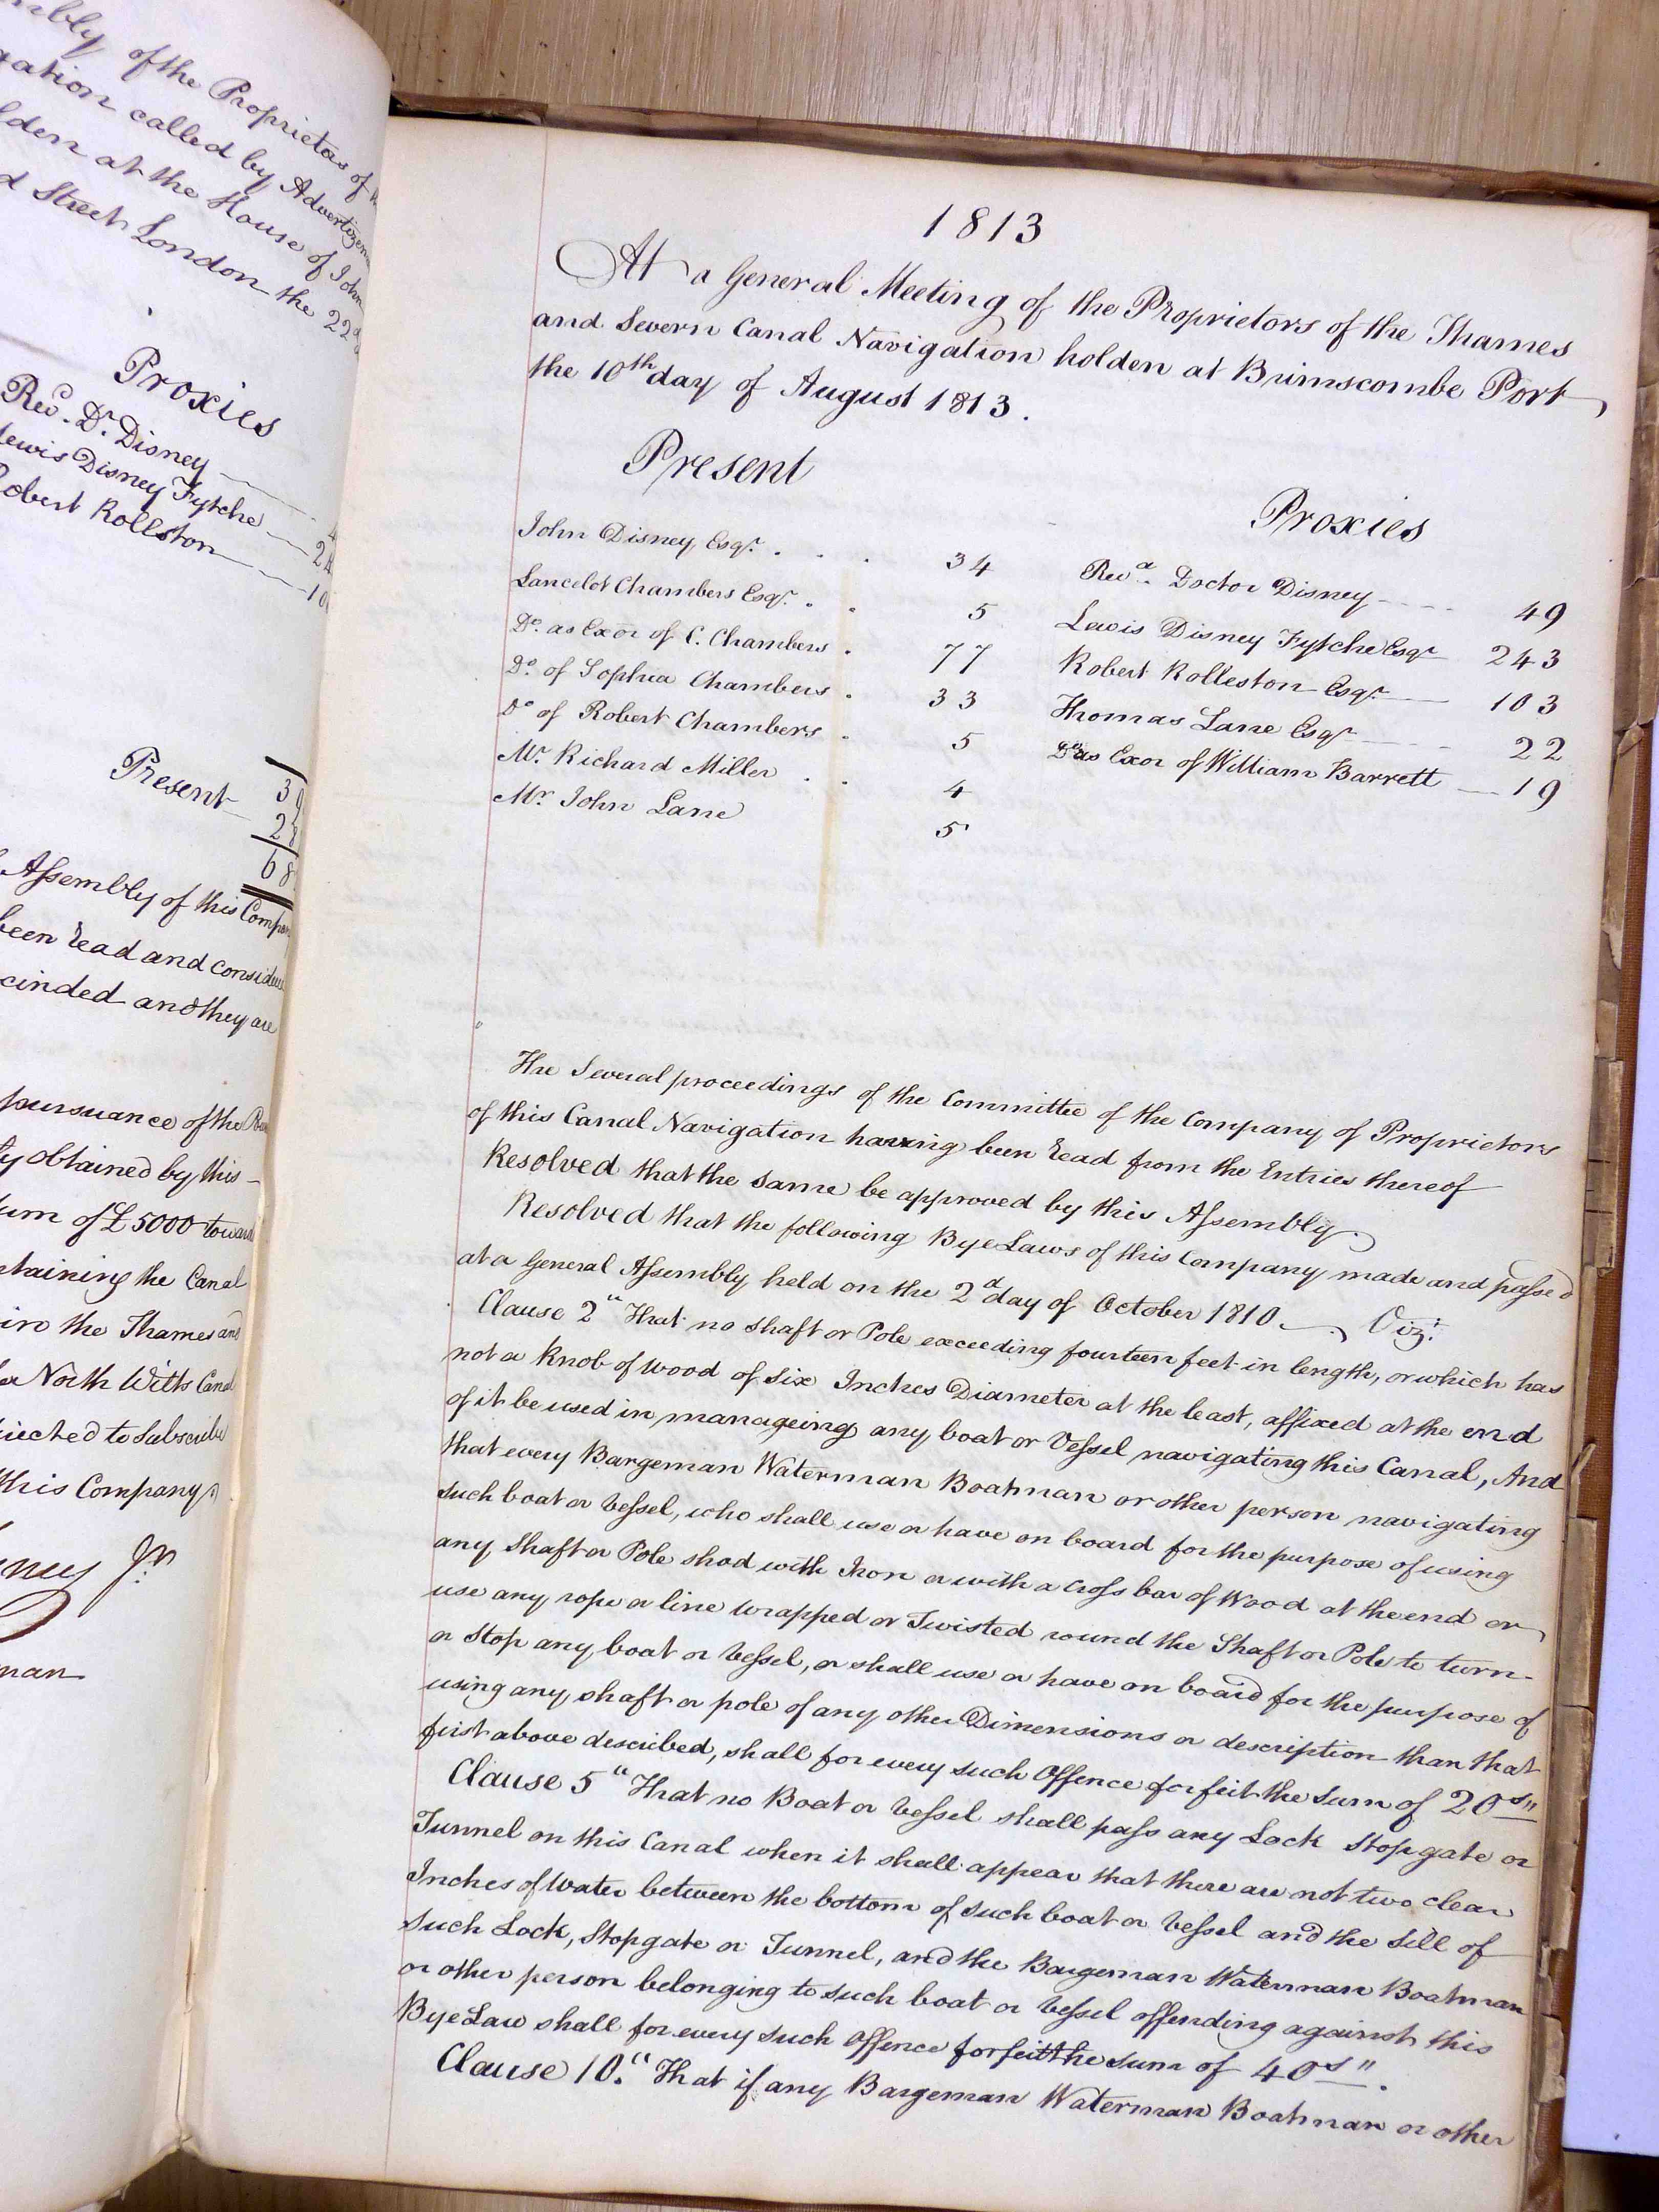 of the Proprietors of
called by Advertizem
lden at the House of John
d Street London the 22d
Proxies
Revd. Dr. Disney
Lewis Disney Fytche 24
Robert Rolleston 10
Present 3
2
68
Assembly of this Compan
been read and consider
cinded and they are
pursuance of the
ty obtained by this
um of £5000 toward
taining the Canal
the Thames and
North Wilts Canal
ected to Subscribe
this Company
Jnr
man
1813
At a General Meeting of the Proprietors of the Thames
and Severn Canal Navigation holden at Brimscombe Port
the 10th day of August 1813.
Present
Proxies
John Disney Esqr. . . . 34
Lancelot Chambers Esqr. . . 5
Do. as Exor of C. Chambers . 77
Do. of Sophia Chambers . 33
Do of Robert Chambers . 5
Mr. Richard Miller . . 4
Mr. John Lane 5
Revd. Doctor Disney 49
Lewis Disney Fytche Esqr 243
Robert Rolleston Esqr. 103
Thomas Lane Esqr 22
Do as Exor of William Barrett 19
The Several proceedings of the Committee of the Company of Proprietors
of this Canal Navigation having been read from the Entries thereof
Resolved that the same be approved by this Assembly
Resolved that the following Bye Laws of this Company made and passed
at a General Assembly held on the 2d day of October 1810. Vizt.
Clause 2 "That no shaft or Pole exceeding fourteen feet in length, or which has
not a Knob of wood of six Inches Diameter at the least, affixed at the end
of it be used in manageing any boat or Vessel navigating this Canal, And
that every Bargeman Waterman Boatman or other person navigating
such boat or vessel, who shall use or have on board for the purpose of using
any Shaft or Pole shod with Iron or with a cross bar of Wood at the end or
use any rope or line wrapped or Twisted round the Shaft or Pole to turn
or Stop any boat or vessel, or shall use or have on board for the purpose of
using any shaft or pole of any other Dimensions or description than that
first above described, shall for every such Offence forfeit the Sum of 20s"
Clause 5 "That no Boat or vessel shall pass any Lock Stopgate or
Tunnel on this Canal when it shall appear that there are not two clear
Inches of Water between the bottom of such boat or vessel and the Sill of
such Lock, Stopgate or Tunnel, and the Bargeman Waterman Boatman
or other person belonging to such boat or vessel offending against this
Bye Law shall for every such Offence forfeit the sum of 40s".
Clause 10. "That if any Bargeman Waterman Boatman or other